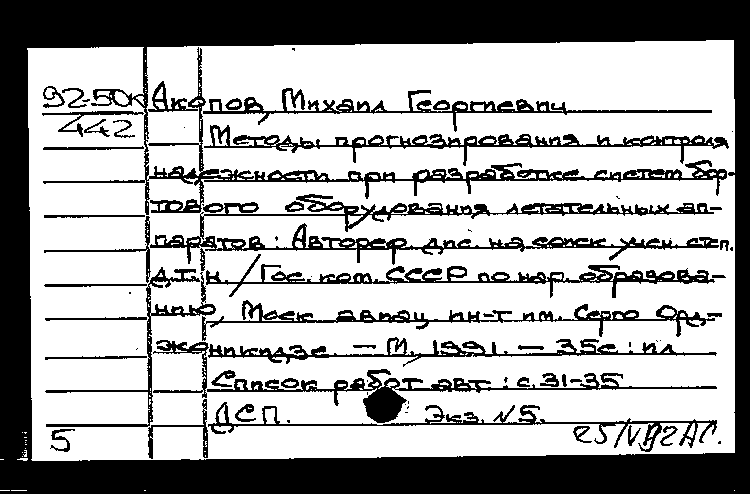 92-50к Акопов, Михаил Георгиевич
442 Методы прогнозирования и контроля
надежности при разработке систем бор-
тового оборудования летательных ап-
паратов : Автореф. дис. на соиск. учен. степ.
д.т.н. / Гос. ком. СССР по нар. образова-
нию, Моск. авиац. ин-т им. Серго Орд-
жоникидзе. — М., 1991. — 35с : ил
Список работ авт : с. 31-35
ДСП. Экз. N5.
5